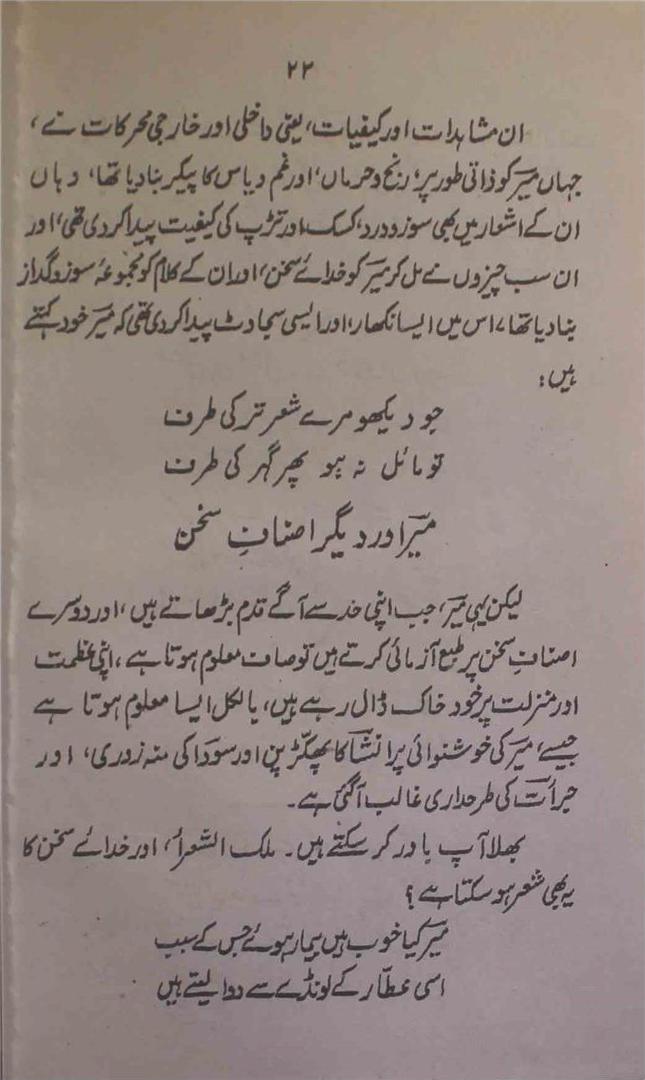 ۲۳
ان مشاہدات اور کیفیات، یعنی داخلی اور خارجی محرکات نے،
جہاں میرؔ کو ذاتی طور پر، رنج و حرماں، اور غم و یاس کا پیکر بنا دیا تھا، وہاں
ان کے اشعار میں بھی سوز و درد، کسک اور تڑپ کی کیفیت پیدا کر دی تھی، اور
ان سب چیزوں نے مل کر میرؔ کو خدائے سخن، اور ان کے کلام کو مجموعۂ سوز و گداز
بنا دیا تھا، اس میں ایسا نکھار، اور ایسی سجاوٹ پیدا کر دی تھی کہ میرؔ خود کہتے
ہیں:
جو دیکھو مرے شعر تر کی طرف
تو مائل نہ ہو پھر گہر کی طرف
میرؔ اور دیگر اصنافِ سخن
لیکن یہی میرؔ، جب اپنی حد سے آگے قدم بڑھاتے ہیں، اور دوسرے
اصنافِ سخن پر طبع آزمائی کرتے ہیں تو صاف معلوم ہوتا ہے، اپنی عظمت
اور منزلت پر خود خاک ڈال رہے ہیں، بالکل ایسا معلوم ہوتا ہے
جیسے، میرؔ کی خوشنوائی پر انشاؔ کا پھکّڑ پن اور سوداؔ کی منہ زوری، اور
جرأتؔ کی طرحداری غالب آگئی ہے۔
بھلا آپ باور کر سکتے ہیں۔ ملک الشعرأ، اور خدائے سخن کا
یہ بھی شعر ہو سکتا ہے؟
میرؔ کیا خوب ہیں بیمار ہوئے جس کے سبب
اسی عطّار کے لونڈے سے دوا لیتے ہیں